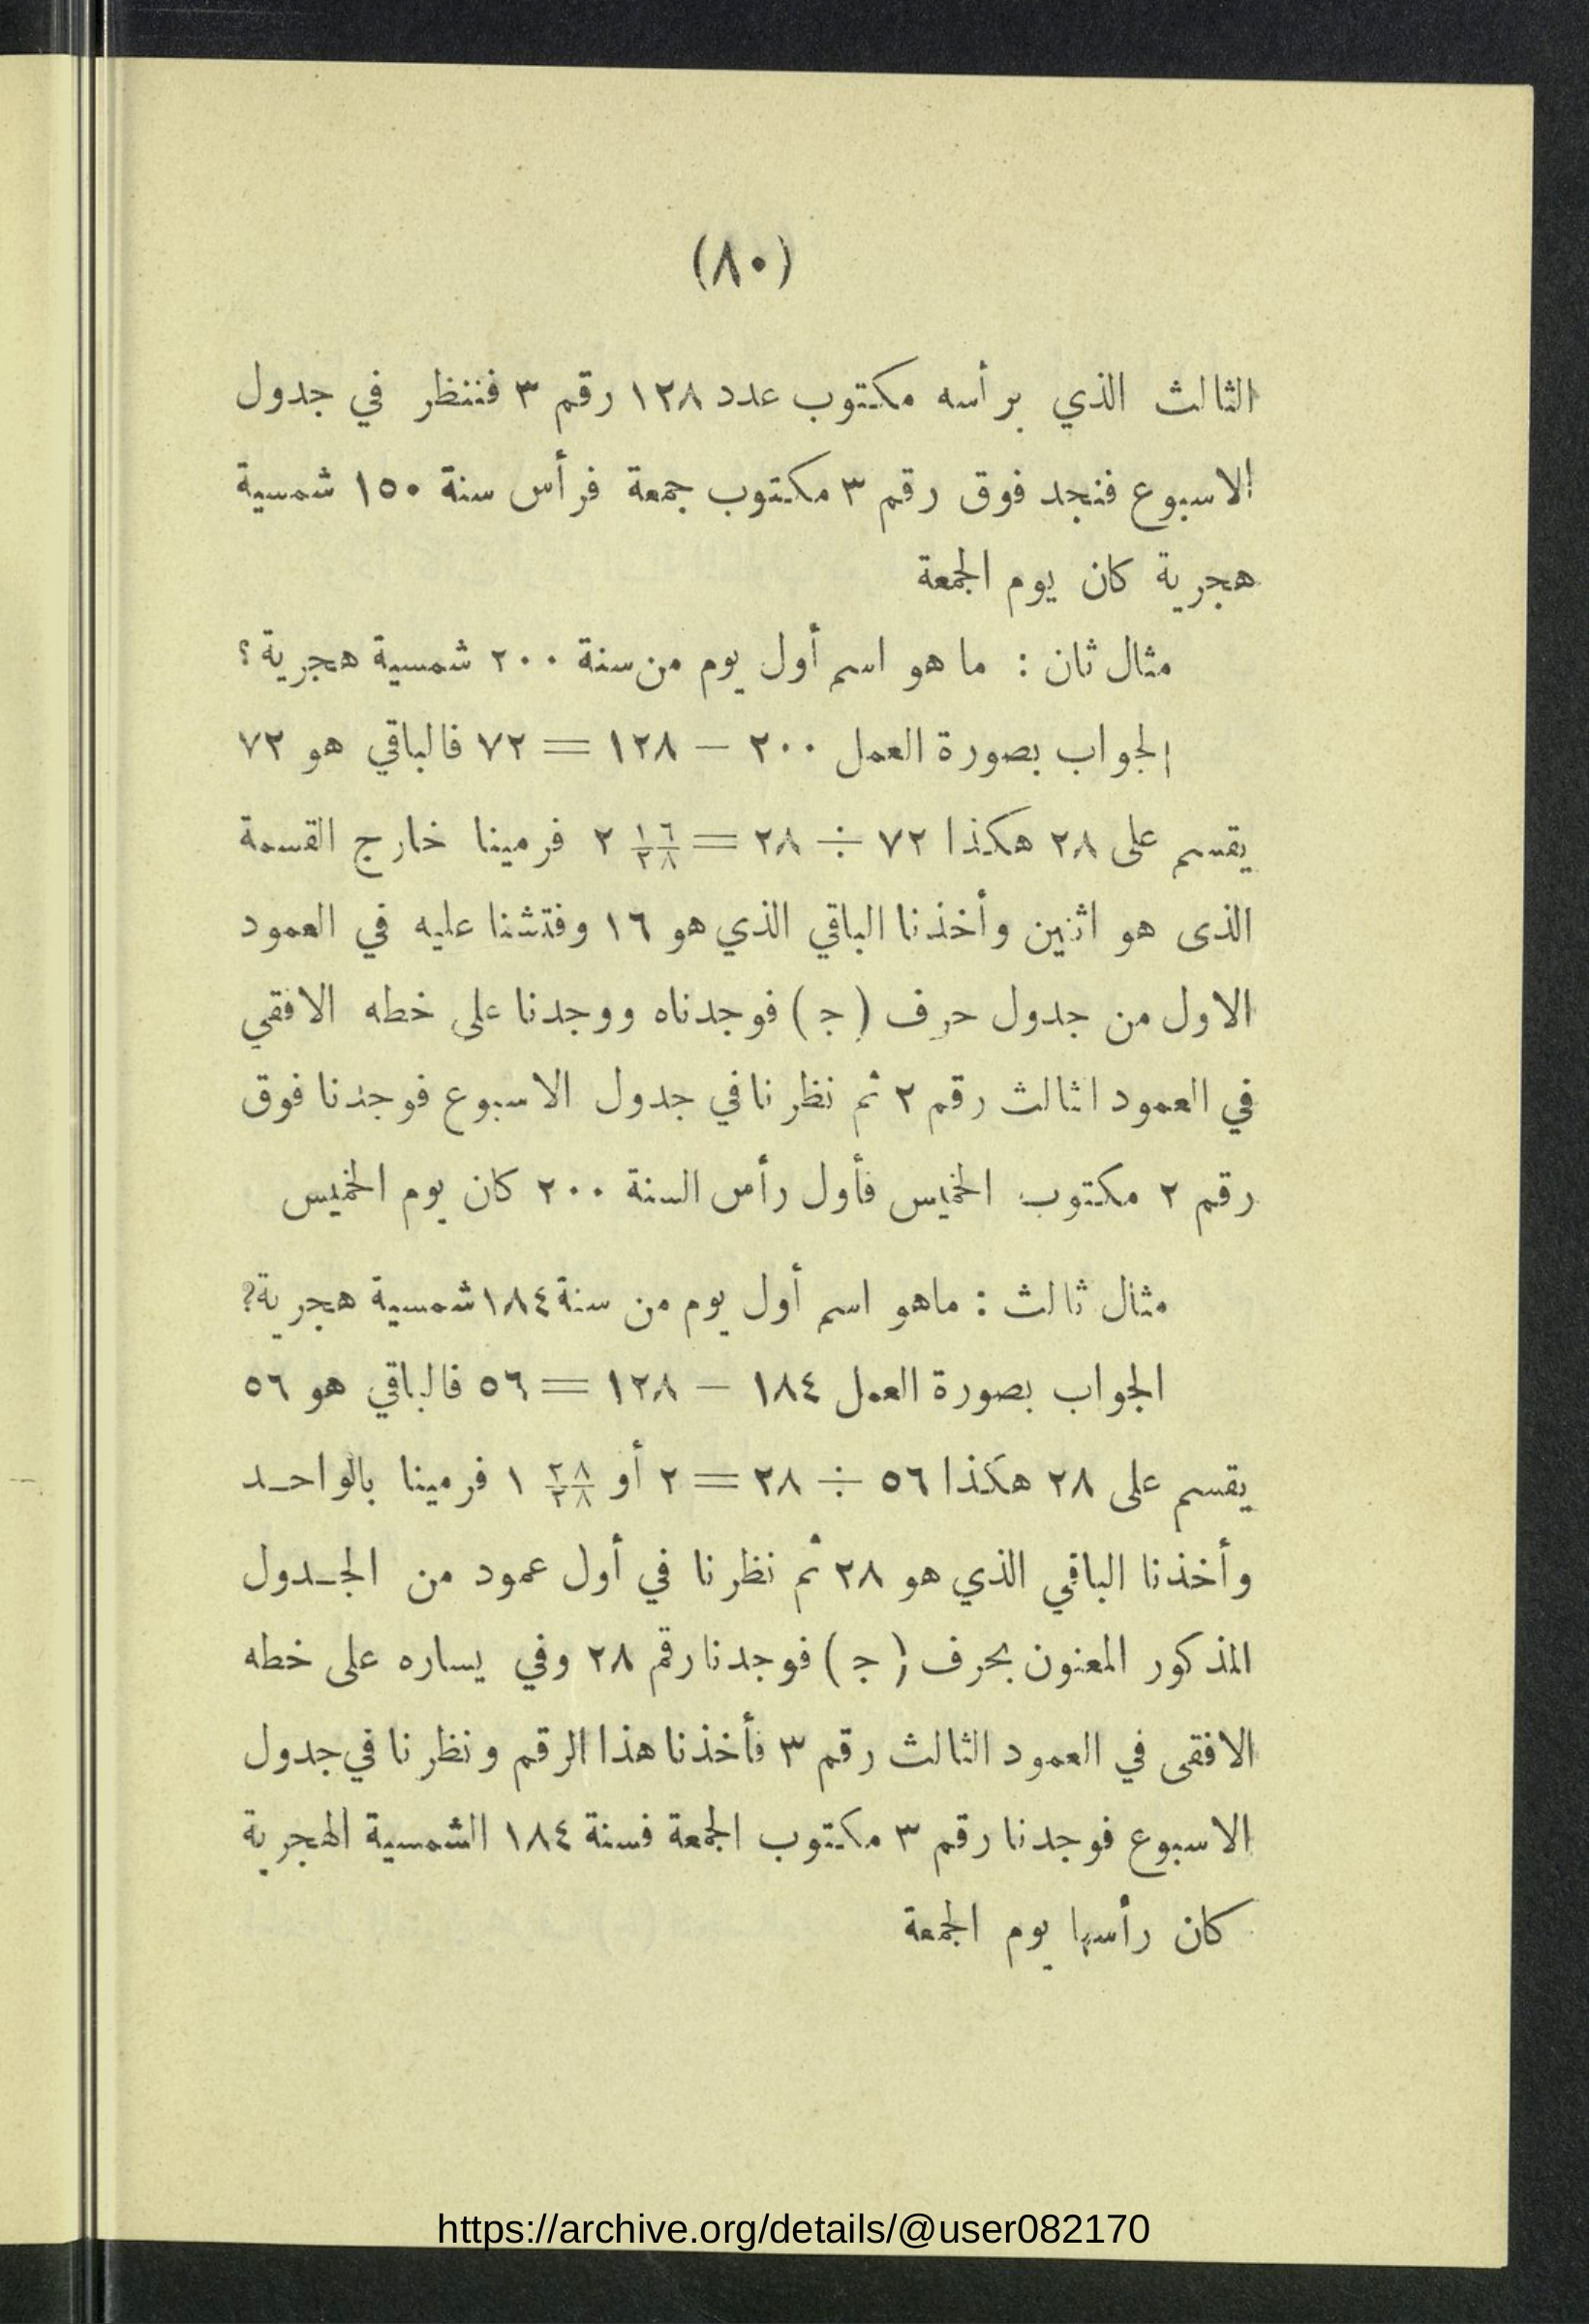 (٨٠)
الثالث الذي برأسه مكتوب عدد ١٢٨ رقم ٣ فننظر في جدول
الاسبوع فنجد فوق رقم ٣ مكتوب جمعة فرأس سنة ١٥٠ شمسية
هجرية كان يوم الجمعة
مثال ثان : ما هو اسم أول يوم من سنة ٢٠٠ شمسية هجرية ؟
الجواب بصورة العمل ٢٠٠ — ١٢٨ = ٧٢ فالباقي هو ٧٢
يقسم على ٢٨ هكذا ٧٢ ÷ ٢٨ = ١٦/٢٨ ٢ فرمينا خارج القسمة
الذى هو اثنين وأخذنا الباقي الذي هو ١٦ وفتشنا عليه في العمود
الاول من جدول حرف ( ج ) فوجدناه ووجدنا على خطه الافقي
في العمود الثالث رقم ٢ ثم نظرنا في جدول الاسبوع فوجدنا فوق
رقم ٢ مكتوب الخميس فأول رأس السنة ٢٠٠ كان يوم الخميس
مثال ثالث : ماهو اسم أول يوم من سنة ١٨٤ شمسية هجرية ؟
الجواب بصورة العمل ١٨٤ — ١٢٨ = ٥٦ فالباقي هو ٥٦
يقسم على ٢٨ هكذا ٥٦ ÷ ٢٨ = ٢ أو ٢٨/٢٨ ١ فرمينا بالواحـد
وأخذنا الباقي الذي هو ٢٨ ثم نظرنا في أول عمود من الجـدول
المذكور المعنون بحرف ( ج ) فوجدنا رقم ٢٨ وفي يساره على خطه
الافقى في العمود الثالث رقم ٣ فأخذنا هذا الرقم ونظرنا في جدول
الاسبوع فوجدنا رقم ٣ مكتوب الجمعة فسنة ١٨٤ الشمسية الهجرية
كان رأسها يوم الجمعة
https://archive.org/details/@user082170